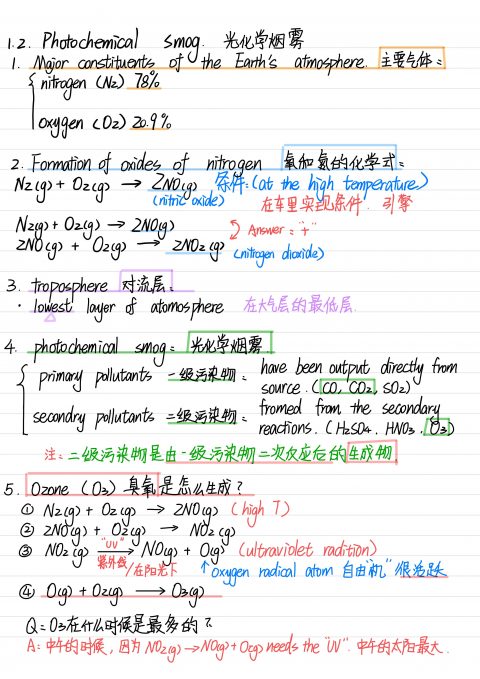 1.2. Photochemical smog. 光化学烟雾
1. Major constituents of the Earth's atmosphere. 主要气体:
nitrogen (N₂) 78%
oxygen (O₂) 20.9%
2. Formation of oxides of nitrogen 氧和氮的化学式:
N₂(g) + O₂(g) → 2NO(g) 条件:(at the high temperature)
(nitric oxide) 在车里实现条件. 引擎
N₂(g) + O₂(g) → 2NO(g)
Answer: "+"
2NO(g) + O₂(g) → 2NO₂(g)
(nitrogen dioxide)
3. troposphere 对流层:
· lowest layer of atomosphere 在大气层的最低层.
4. photochemical smog: 光化学烟雾
primary pollutants 一级污染物: have been output directly from
source. (CO, CO₂, SO₂)
secondry pollutants 二级污染物: fromed from the secondary
reactions. (H₂SO₄. HNO₃. O₃)
注: 二级污染物是由一级污染物二次反应后的生成物
5. Ozone (O₃) 臭氧是怎么生成?
① N₂(g) + O₂(g) → 2NO(g) (high T)
② 2NO(g) + O₂(g) → NO₂(g)
③ NO₂(g) "UV" → NO(g) + O(g) (ultraviolet radition)
紫外线/在阳光下 ↑Oxygen radical atom 自由"机" 很活跃
④ O(g) + O₂(g) → O₃(g)
Q: O₃在什么时候是最多的?
A: 中午的时候, 因为 NO₂(g) → NO(g) + O(g) needs the "UV". 中午的太阳最大.